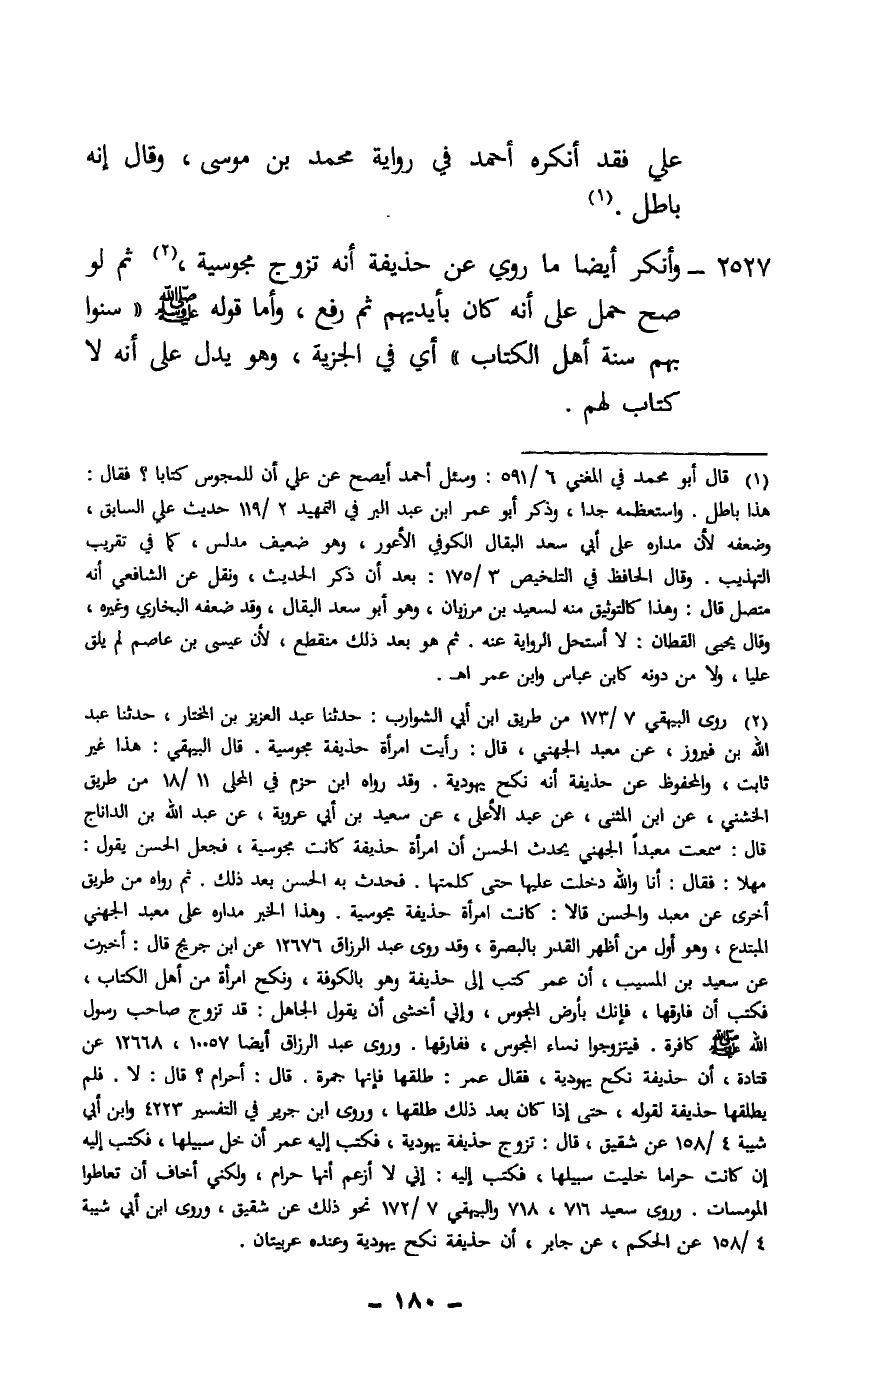 علي فقد أنكره أحمد في رواية محمد بن موسى ، وقال إنه
باطل .(١)
٢٥٢٧ ــ وأنكر أيضا ما روي عن حذيفة أنه تزوج مجوسية ،(٢) ثم لو
صح حمل على أنه كان بأيديهم ثم رفع ، وأما قوله ﷺ « سنوا
بهم سنة أهل الكتاب » أي في الجزية ، وهو يدل على أنه لا
كتاب لهم .
(١) قال أبو محمد في المغني ٦ /٥٩١ : وسئل أحمد أيصح عن علي أن للمجوس كتابا ؟ فقال :
هذا باطل . واستعظمه جدا ، وذكر أبو عمر ابن عبد البر في التمهيد ٢ /١١٩ حديث علي السابق ،
وضعفه لأن مداره على أبي سعد البقال الكوفي الأعور ، وهو ضعيف مدلس ، كما في تقريب
التهذيب . وقال الحافظ في التلخيص ٣ /١٧٥ : بعد أن ذكر الحديث ، ونقل عن الشافعي أنه
متصل قال : وهذا كالتوثيق منه لسعيد بن مرزبان ، وهو أبو سعد البقال ، وقد ضعفه البخاري وغيره ،
وقال يحيى القطان : لا أستحل الرواية عنه . ثم هو بعد ذلك منقطع ، لأن عيسى بن عاصم لم يلق
عليا ، ولا من دونه كابن عباس وابن عمر اهـ .
(٢) روى البيهقي ٧ /١٧٣ من طريق ابن أبي الشوارب : حدثنا عبد العزيز بن المختار ، حدثنا عبد
الله بن فيروز ، عن معبد الجهني ، قال : رأيت امرأة حذيفة مجوسية . قال البيهقي : هذا غير
ثابت ، والمحفوظ عن حذيفة أنه نكح يهودية . وقد رواه ابن حزم في المحلى ١١ /١٨ من طريق
الخشني ، عن ابن المثنى ، عن عبد الأعلى ، عن سعيد بن أبي عروبة ، عن عبد الله بن الداناج
قال : سمعت معبداً الجهني يحدث الحسن أن امرأة حذيفة كانت مجوسية ، فجعل الحسن يقول :
مهلا : فقال : أنا والله دخلت عليها حتى كلمتها . فحدث به الحسن بعد ذلك . ثم رواه من طريق
أخرى عن معبد والحسن قالا : كانت امرأة حذيفة مجوسية . وهذا الخبر مداره على معبد الجهني
المبتدع ، وهو أول من أظهر القدر بالبصرة ، وقد روى عبد الرزاق ١٢٦٧٦ عن ابن جريج قال : أخبرت
عن سعيد بن المسيب ، أن عمر كتب إلى حذيفة وهو بالكوفة ، ونكح امرأة من أهل الكتاب ،
فكتب أن فارقها ، فإنك بأرض المجوس ، وإني أخشى أن يقول الجاهل : قد تزوج صاحب رسول
الله ﷺ كافرة . فيتزوجوا نساء المجوس ، ففارقها . وروى عبد الرزاق أيضا ١٠٠٥٧ ، ١٢٦٦٨ عن
قتادة ، أن حذيفة نكح يهودية ، فقال عمر : طلقها فإنها جمرة . قال : أحرام ؟ قال : لا . فلم
يطلقها حذيفة لقوله ، حتى إذا كان بعد ذلك طلقها ، وروى ابن جرير في التفسير ٤٢٢٣ وابن أبي
شيبة ٤ /١٥٨ عن شقيق ، قال : تزوج حذيفة يهودية ، فكتب إليه عمر أن خل سبيلها ، فكتب إليه
إن كانت حراما خليت سبيلها ، فكتب إليه : إني لا أزعم أنها حرام ، ولكني أخاف أن تعاطوا
المومسات . وروى سعيد ٧١٦ ، ٧١٨ والبيهقي ٧ /١٧٢ نحو ذلك عن شقيق ، وروى ابن أبي شيبة
٤ /١٥٨ عن الحكم ، عن جابر ، أن حذيفة نكح يهودية وعنده عربيتان .
ـ ١٨٠ ـ